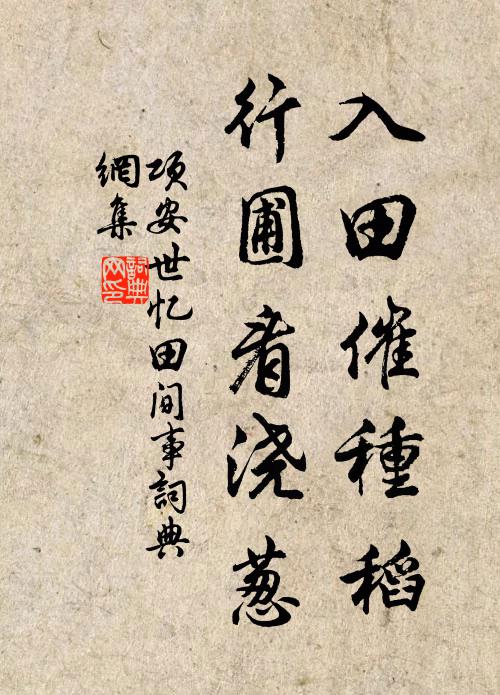 入田催種稻
行圃看浇葱
项安世忆田间事詞典
網集
詞典
网印